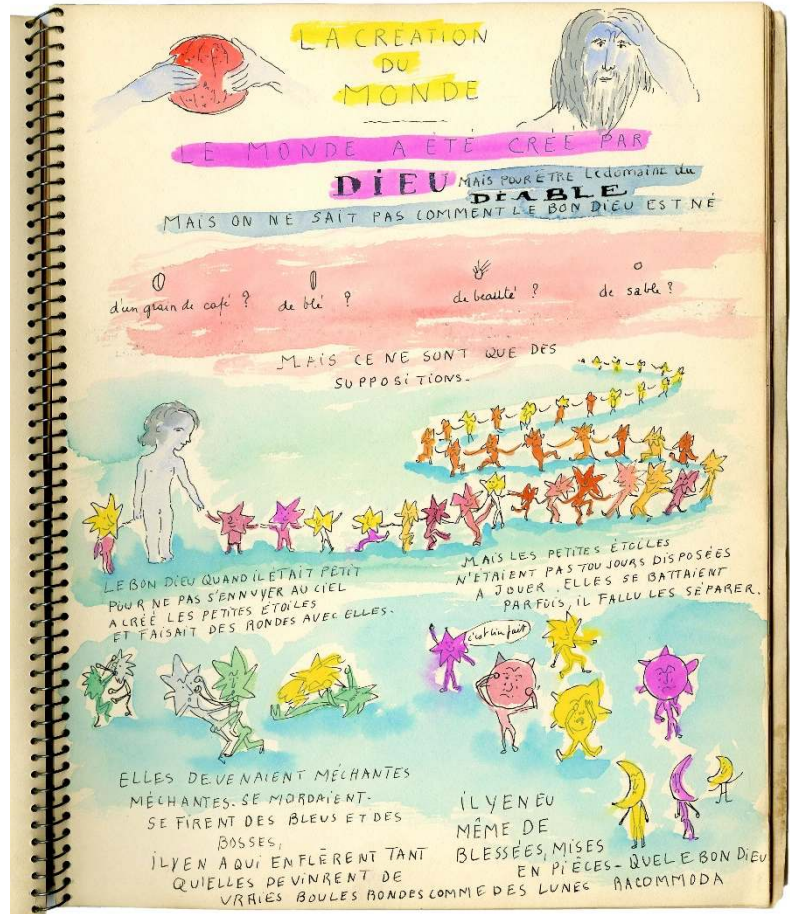 LA CRÉATION
DU
MONDE
LE MONDE A ÉTÉ CRÉÉ PAR
DiEU MAIS POUR ÊTRE LE domaine du
DÉABLE
MAIS ON NE SAIT PAS COMMENT LE BON DIEU EST NÉ
d'un grain de café ? de blé ? de beauté ? de sable ?
MAIS CE NE SONT QUE DES
SUPPOSITIONS.
LE BON DIEU QUAND IL ÉTAIT PETIT
POUR NE PAS S'ENNUYER AU CIEL
A CRÉÉ LES PETITES ÉTOILES
ET FAISAIT DES RONDES AVEC ELLES.
MAIS LES PETITES ÉTOILES
N'ÉTAIENT PAS TOUJOURS DISPOSÉES
A JOUER. ELLES SE BATTAIENT
PARFOIS, IL FALLU LES SÉPARER.
c'est bien fait
ELLES DEVENAIENT MÉCHANTES
MÉCHANTES. SE MORDAIENT.
SE FIRENT DES BLEUS ET DES
BOSSES,
iL Y EN A QUi ENFLÈRENT TANT
QU'ELLES DEVINRENT DE
VRAIES BOULES RONDES COMME DES LUNES
iL Y EN EU
MÊME DE
BLESSÉES, MISES
EN PIÈCES - QUE LE BON DIEU
RACOMMODA